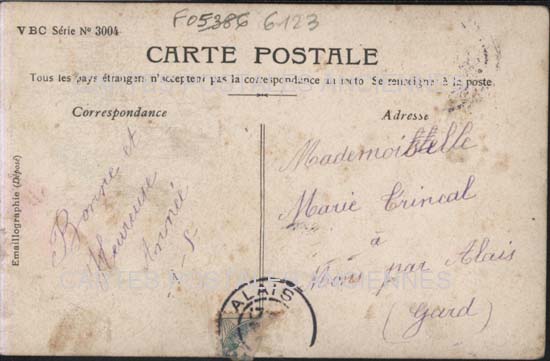 F05386 6123
VBC Série Nº 3004
CARTE POSTALE
Tous les pays étrangers n'acceptent pas la correspondance au recto. Se renseigner à la poste.
Correspondance
Adresse
Emaillographie (Déposé)
Bonne et
Heureuse
Année
Mademoiselle
Marie
à
par Alais
(Gard)
ALAIS
CARTES POSTALES ANCIENNES